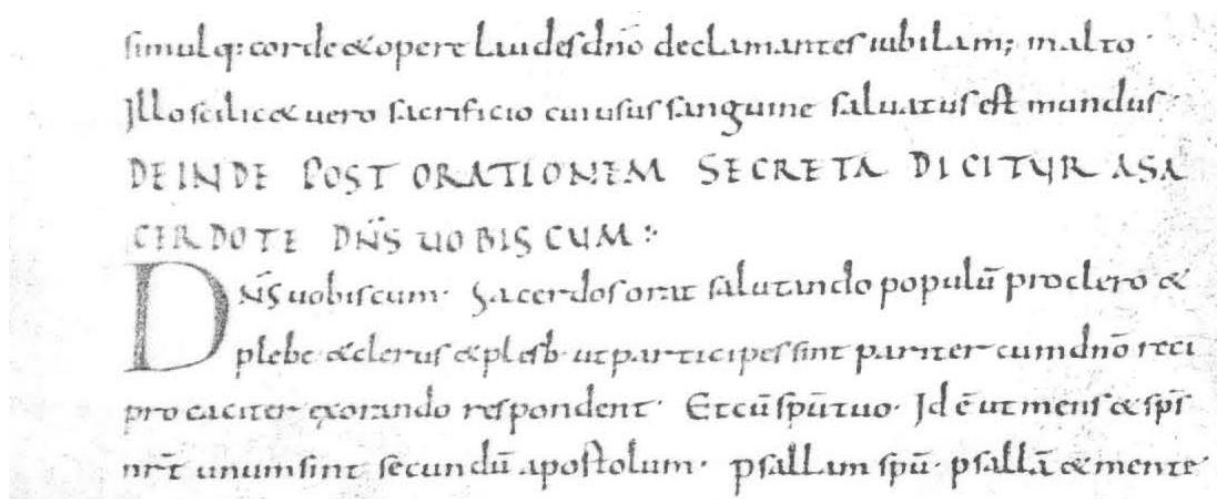 simulq: corde & opere laudes dnō declamantes iubilam; in alto ·
Illo scilic& uero sacrificio cuius sanguine saluatus est mundus ·
DEINDE POST ORATIONEM SECRETA DICITUR A SA
CERDOTE DN̄S UOBISCUM :
DN̄S uobiscum · Sacerdos orat salutando populū pro clero &
plebe & clerus & plesb· ut participes sint pariter cum dnō reci
procaciter exorando respondent · Et cū spū tuo · Id ē ut mens & sps̄
nr̄t unum sint secundū apostolum · psallam spū · psallā & mente ·